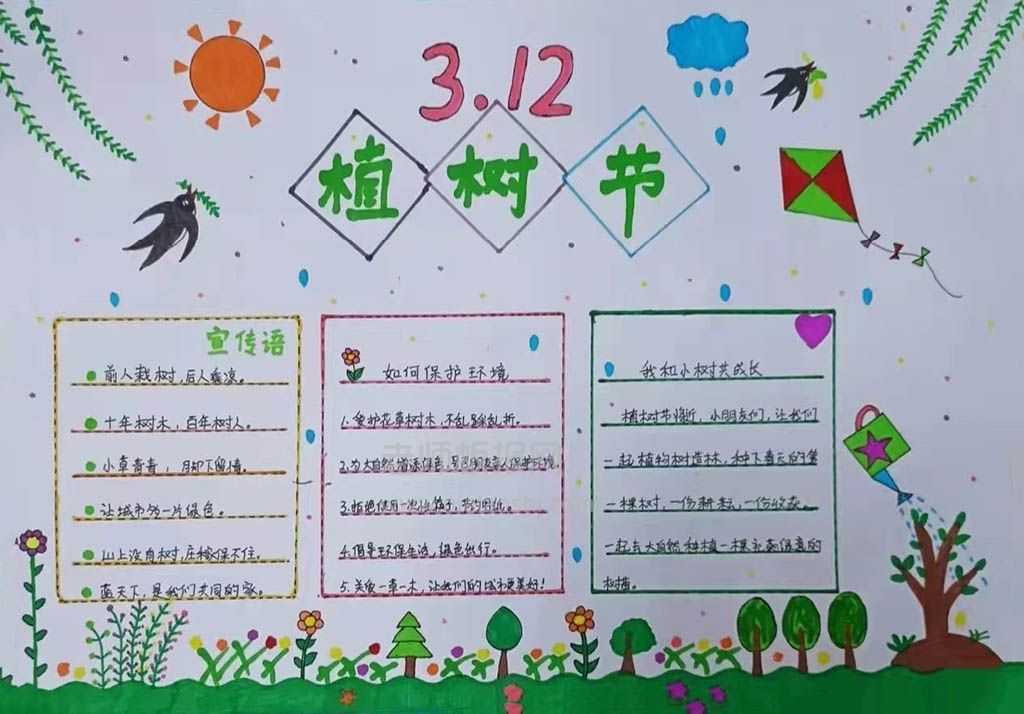 3.12
植树节
宣传语
前人栽树，后人乘凉。
十年树木，百年树人。
小草青青，脚下留情。
让城市多一片绿色。
山上没有树，庄稼保不住。
蓝天下，是我们共同的家。
如何保护环境
1.爱护花草树木，不乱踩乱折。
2.为大自然增添绿色，号召朋友家人保护环境。
3.拒绝使用一次性筷子，节约用纸。
4.倡导环保生活，绿色出行。
5.关爱一草一木，让我们的城市更美好！
我和小树共成长
植树节将近，小朋友们，让我们
一起植物树造林，种下春天的第
一棵树，一份耕耘，一份收获。
一起去大自然种植一棵
树苗。